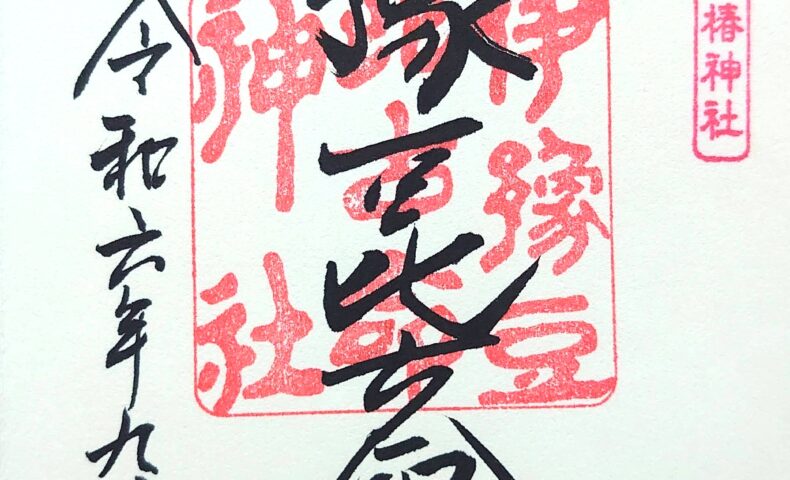 椿神社
豫豆比古命
伊豫豆
比古命
神社
令和六年九